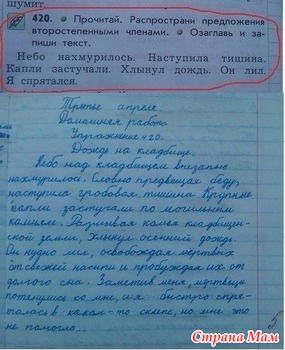 шумит.
420. • Прочитай. Распространи предложения
второстепенными членами. • Озаглавь и за-
пиши текст.
Небо нахмурилось. Наступила тишина.
Капли застучали. Хлынул дождь. Он лил.
Я спрятался.
Третье апреля.
Домашняя работа
Упражнение 420.
Дождь на кладбище.
Небо над кладбищем внезапно
нахмурилось. Словно предвещая беду,
наступила гробовая тишина. Крупные
капли застучали по могильным
камням. Размывая комья кладбищен-
ской земли, хлынул осенний дождь.
Он нудно лил, освобождая мёртвых
от свежей насыпи и пробуждая их от
долгого сна. Заметив меня, мертвецы
потянулись ко мне, и я быстро спря-
талась в каком-то склепе, но мне это
не помогло...
5
Страна Мам